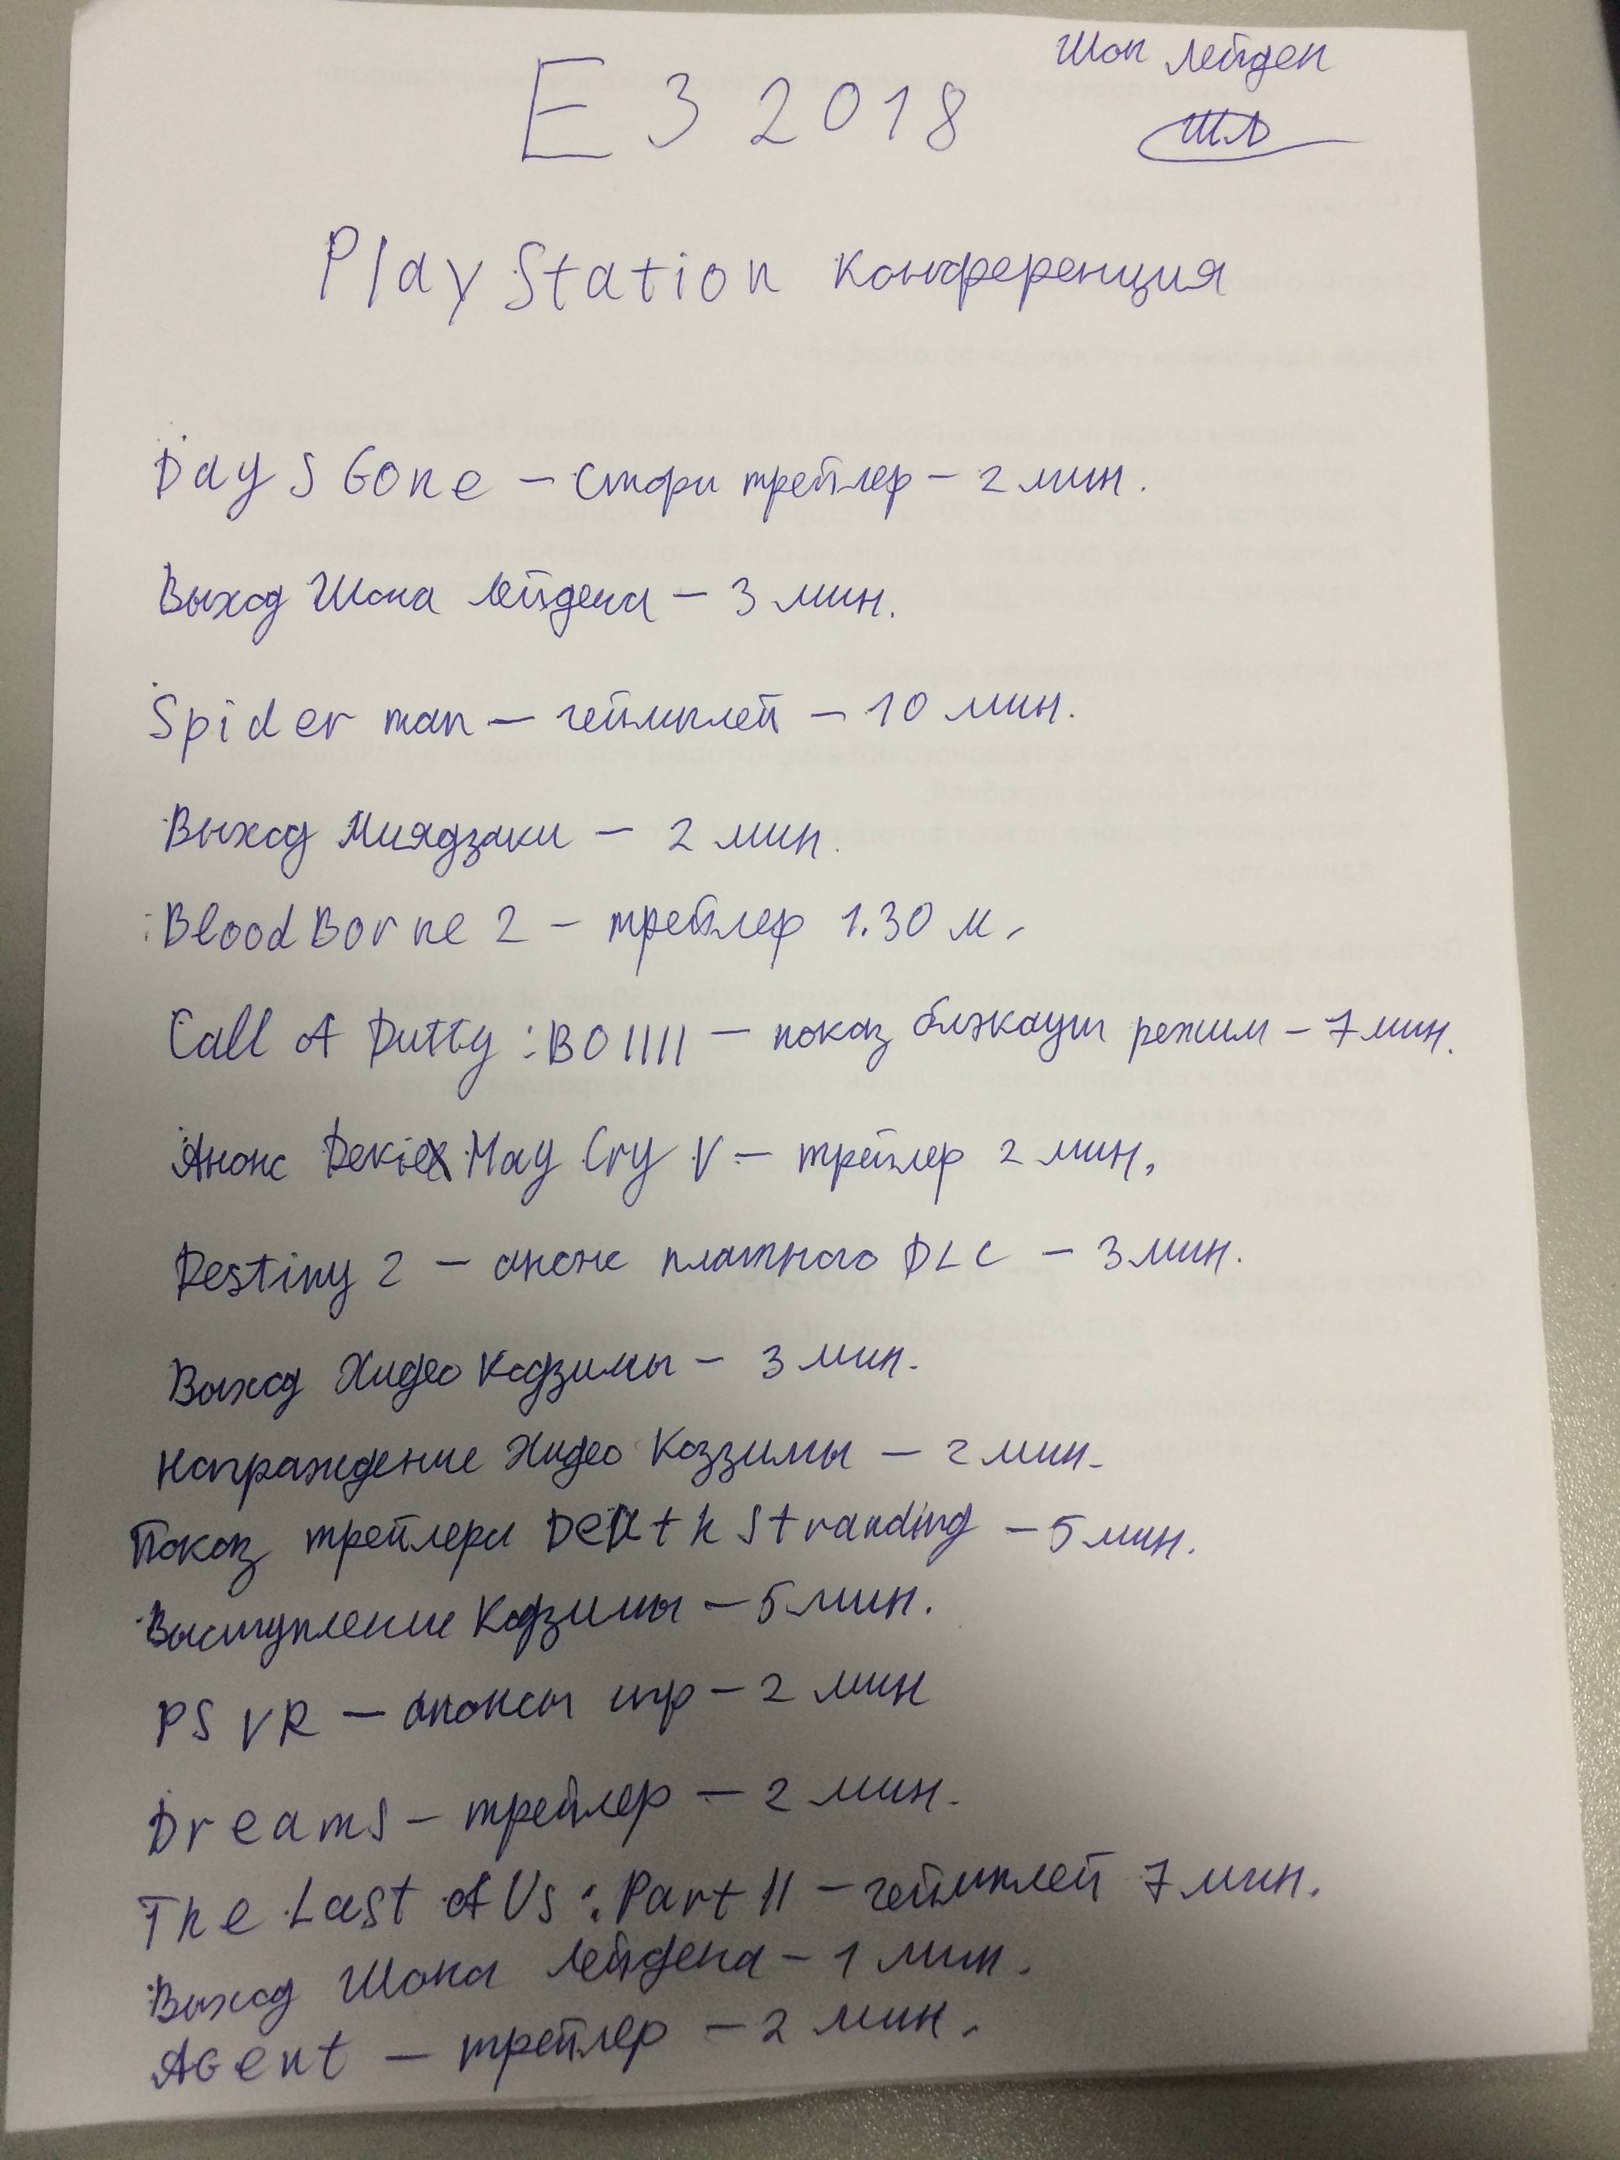 Шон Лейден
E3 2018
ШЛ
PlayStation конференция
Days Gone – Стори трейлер – 2 мин.
Выход Шона Лейдена – 3 мин.
Spider man – геймплей – 10 мин.
Выход Миядзаки – 2 мин.
BloodBorne 2 – трейлер 1.30 м.
Call of Dutty: BO IIII – показ блэкаут режим – 7 мин.
Анонс May Cry V – трейлер 2 мин.
Destiny 2 – анонс платного DLC – 3 мин.
Выход Хидео Кодзимы – 3 мин.
Награждение Хидео Коззимы – 2 мин.
Показ трейлера Death Stranding – 5 мин.
Выступление Кодзимы – 5 мин.
PS VR – анонсы игр – 2 мин
Dreams – трейлер – 2 мин.
The Last of Us: Part II – геймплей 7 мин.
Выход Шона Лейдена – 1 мин.
Agent – трейлер – 2 мин.